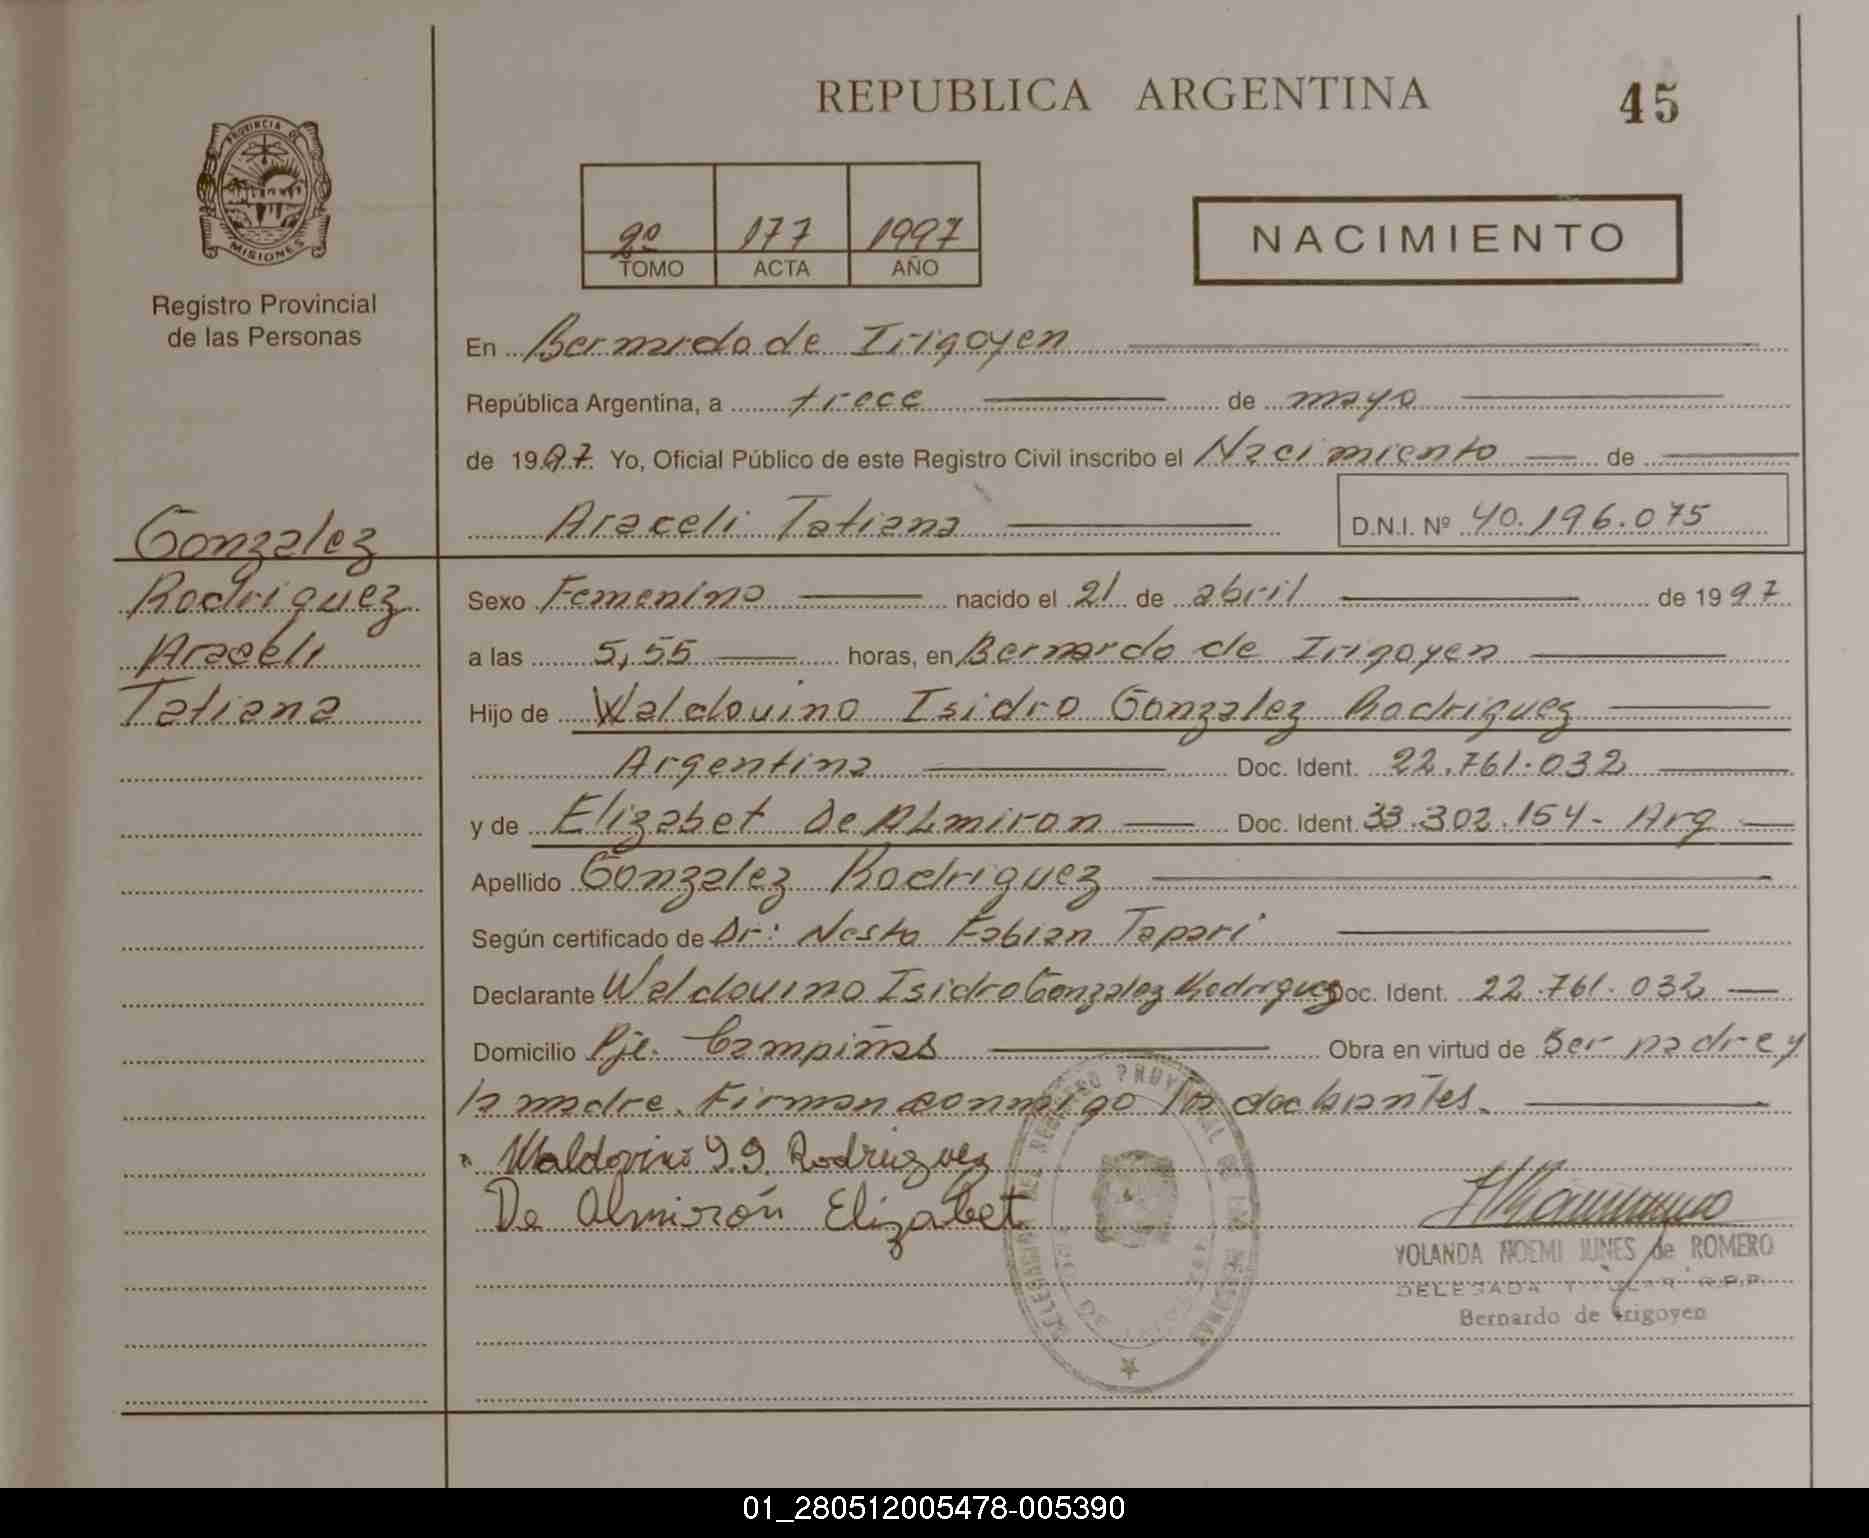 REPUBLICA ARGENTINA
45
PROVINCIA DE
MISIONES
Registro Provincial
de las Personas
2º 177 1997
TOMO ACTA AÑO
NACIMIENTO
En Bernardo de Irigoyen
República Argentina, a trece de mayo
de 1997. Yo, Oficial Público de este Registro Civil inscribo el Nacimiento de
Araceli Tatiana D.N.I. Nº 40.196.075
Gonzalez
Rodriguez
Araceli
Tatiana
Sexo Femenino nacido el 21 de abril de 1997
a las 5,55 horas, en Bernardo de Irigoyen
Hijo de Waldouino Isidro Gonzalez Rodriguez
Argentina Doc. Ident. 22.761.032
y de Elizabet De ALmiron Doc. Ident. 33.302.154- Arg
Apellido Gonzalez Rodriguez
Según certificado de Dr: Nesto Fabian Tapari
Declarante Waldouino Isidro Gonzalez Rodriguez Doc. Ident. 22.761.032
Domicilio Pje. Campiñas Obra en virtud de Ser padre y
la madre. Firman conmigo los declarantes.
Waldovino Rodriguez
De Almirón Elizabet
YOLANDA NOEMI JUNES de ROMERO
DELEGADA TITULAR R.P.P.
Bernardo de Irigoyen
01_280512005478-005390